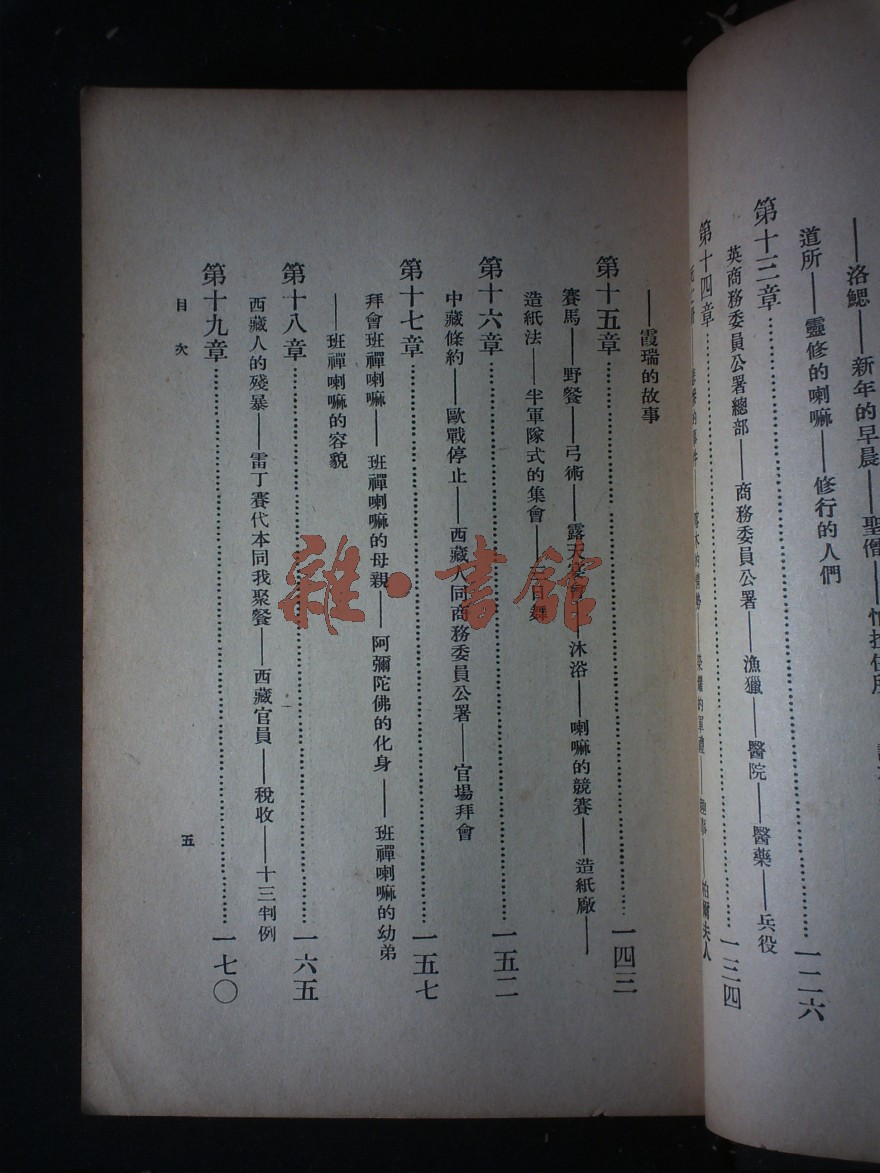 ——洛鰓——新年的早晨——聖僧——
道所——靈修的喇嘛——修行的人們
第十三章……一二六
英商務委員公署總部——商務委員公署——漁獵——醫院——醫藥——兵役
第十四章……一三四
——霞瑞的故事
第十五章……一四三
賽馬——野餐——弓術——露天宴會——沐浴——喇嘛的競賽——造紙廠——
造紙法——半軍隊式的集會——三日舞
第十六章……一五二
中藏條約——歐戰停止——西藏人同商務委員公署——官場拜會
第十七章……一五七
拜會班禪喇嘛——班禪喇嘛的母親——阿彌陀佛的化身——班禪喇嘛的幼弟
——班禪喇嘛的容貌
第十八章……一六五
西藏人的殘暴——雷丁賽代本同我聚餐——西藏官員——稅收——十三判例
第十九章……一七〇
目次
五
雜·書館